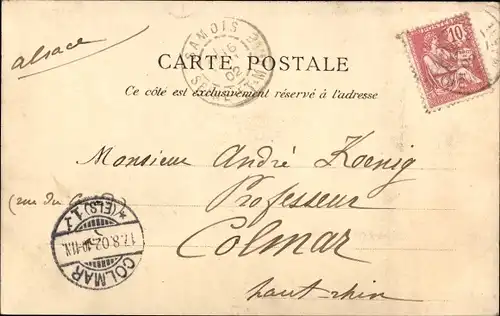 alsace
SAMOIS
CARTE POSTALE
Ce côté est exclusivement réservé à l'adresse
10
Monsieur André Koenig
(rue du
Professeur
Colmar
haut-rhin
COLMAR
17.8.02
*(ELS)1.